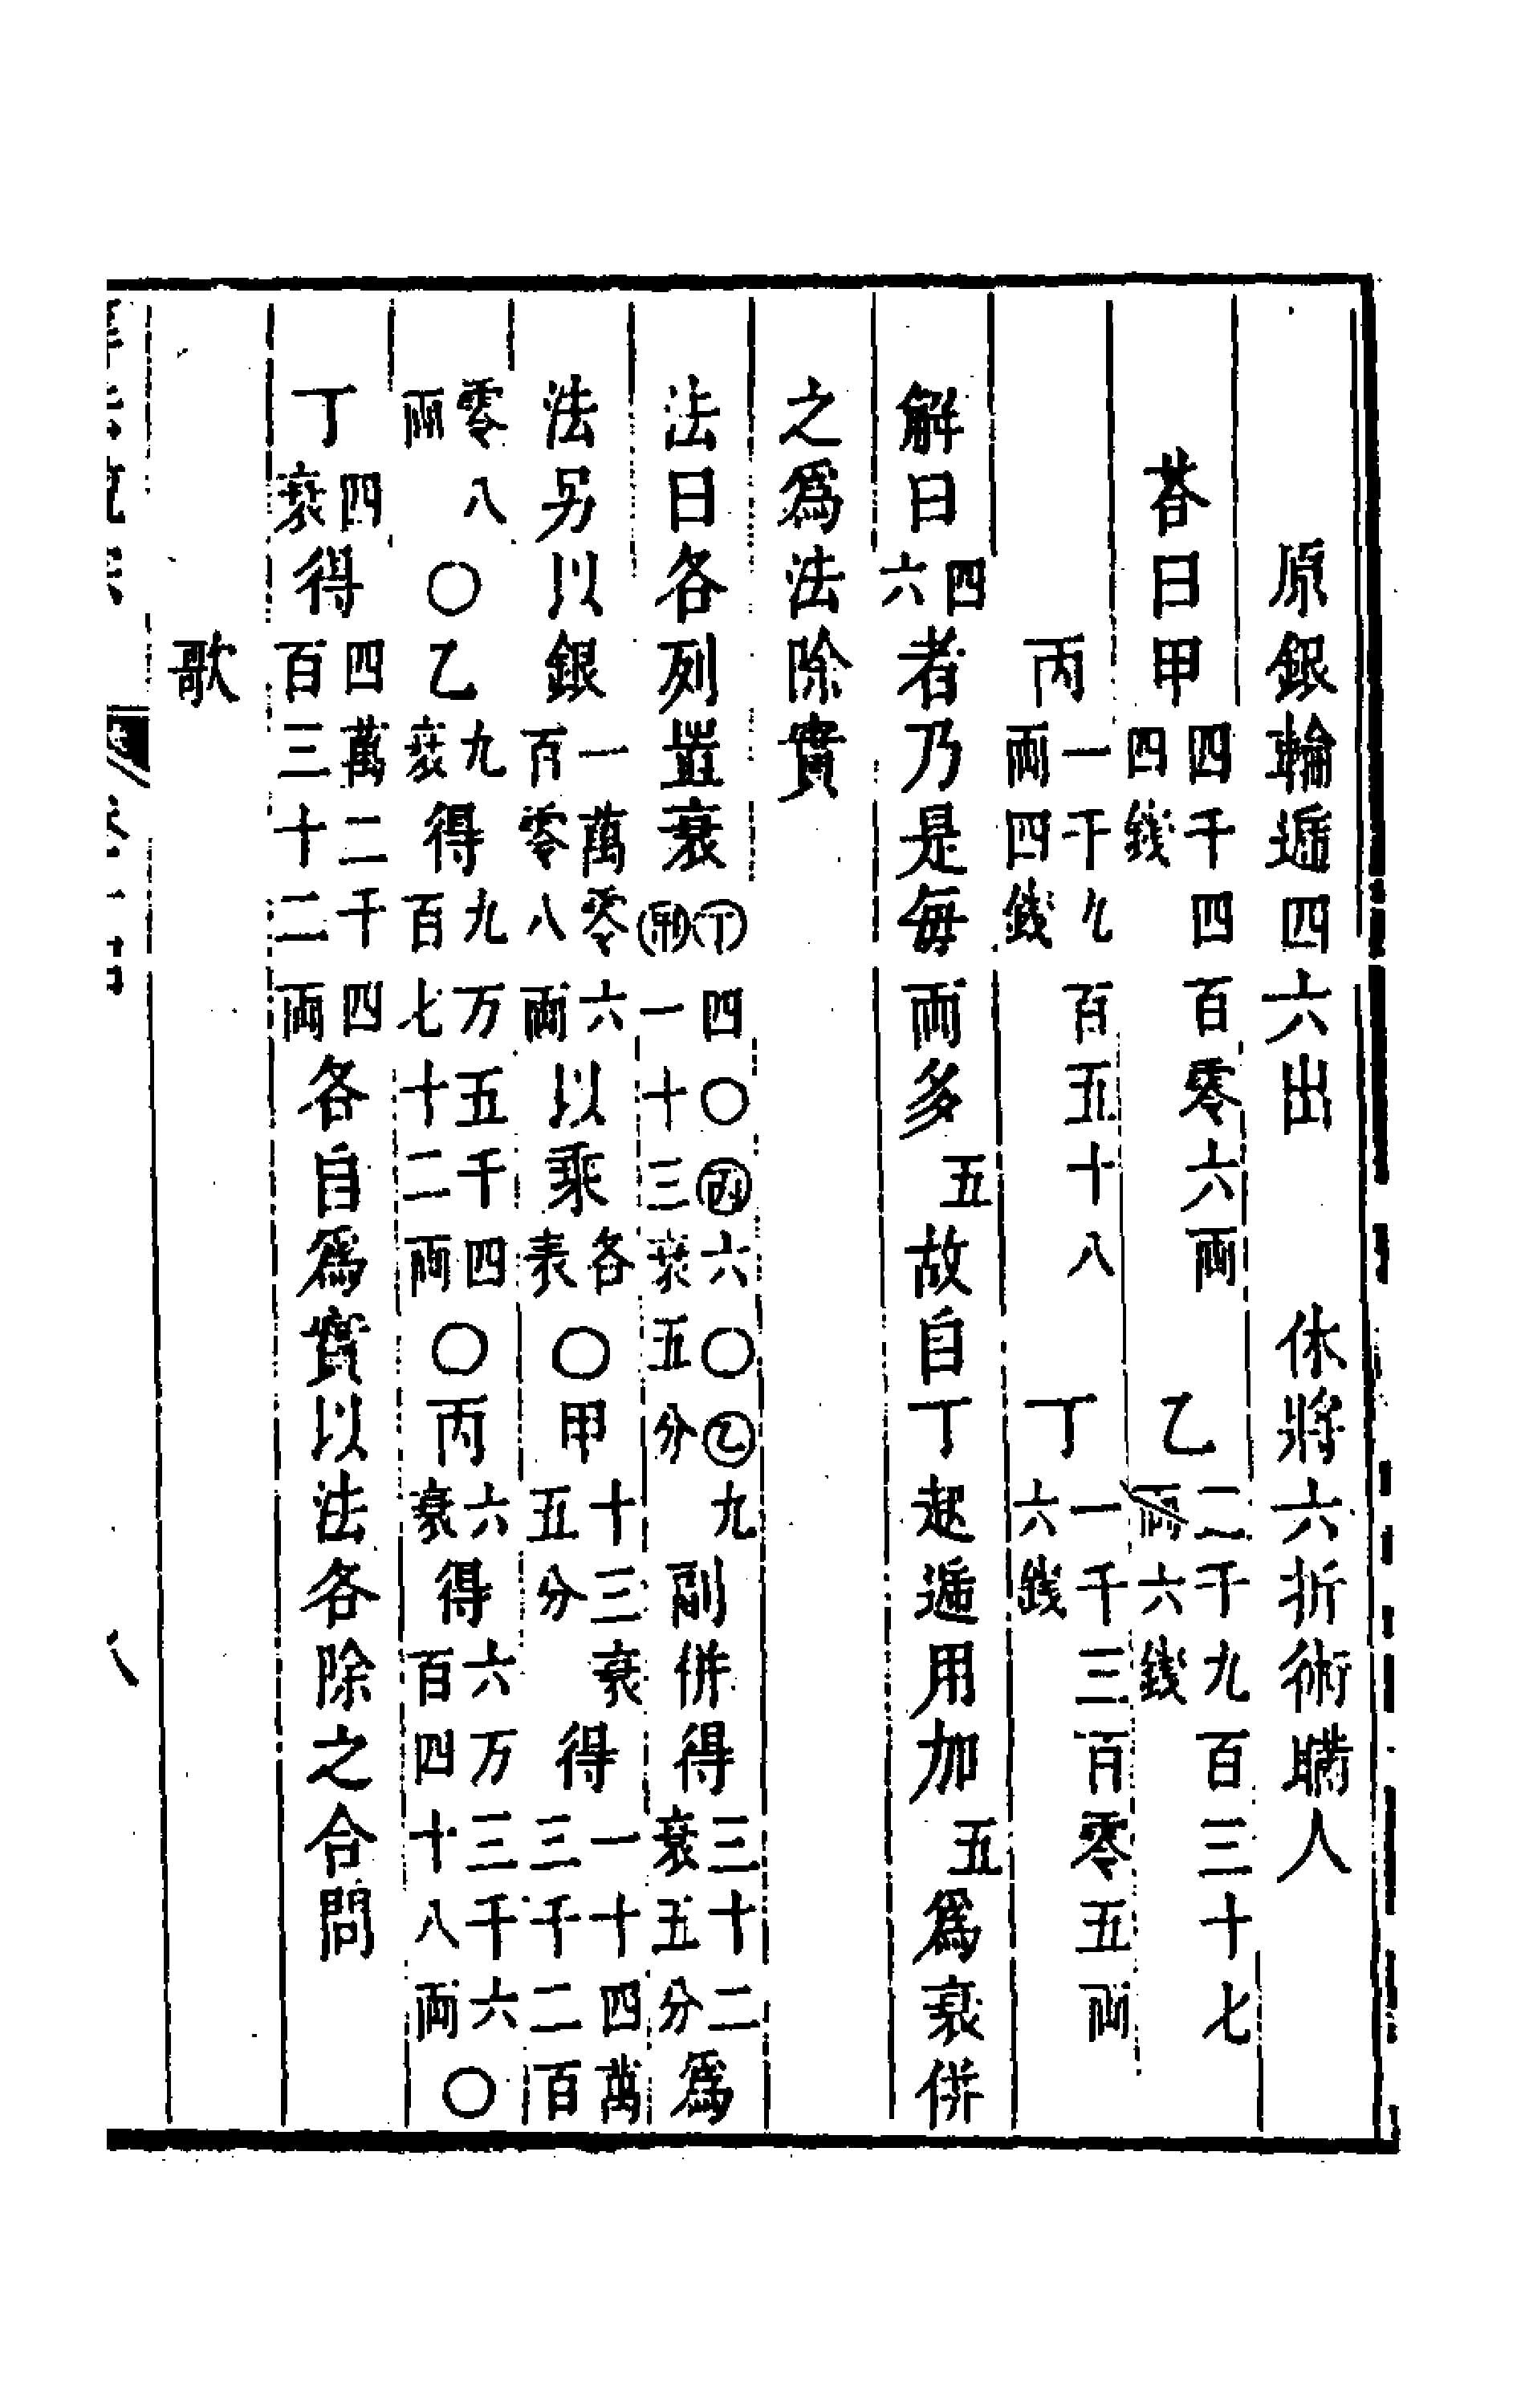 原銀輪遞四六出　休將六折術瞞人
荅曰甲四千四百零六兩四錢　乙二千九百三十七兩六錢
丙一千九百五十八兩四錢　丁一千三百零五兩六錢
解曰四六者乃是每兩多五故自丁起遞用加五爲衰併
之爲法除實
法曰各列置衰丁四〇丙六〇乙九甲一十三衰五分副併得三十二衰五分爲
法另以銀一萬零六百零八兩以乘各衰〇甲十三衰五分得一十四萬三千二百
零八兩〇乙九衰得九万五千四百七十二兩〇丙六衰得六万三千六百四十八兩〇
丁四衰得四萬二千四百三十二兩各自爲實以法各除之合問
歌